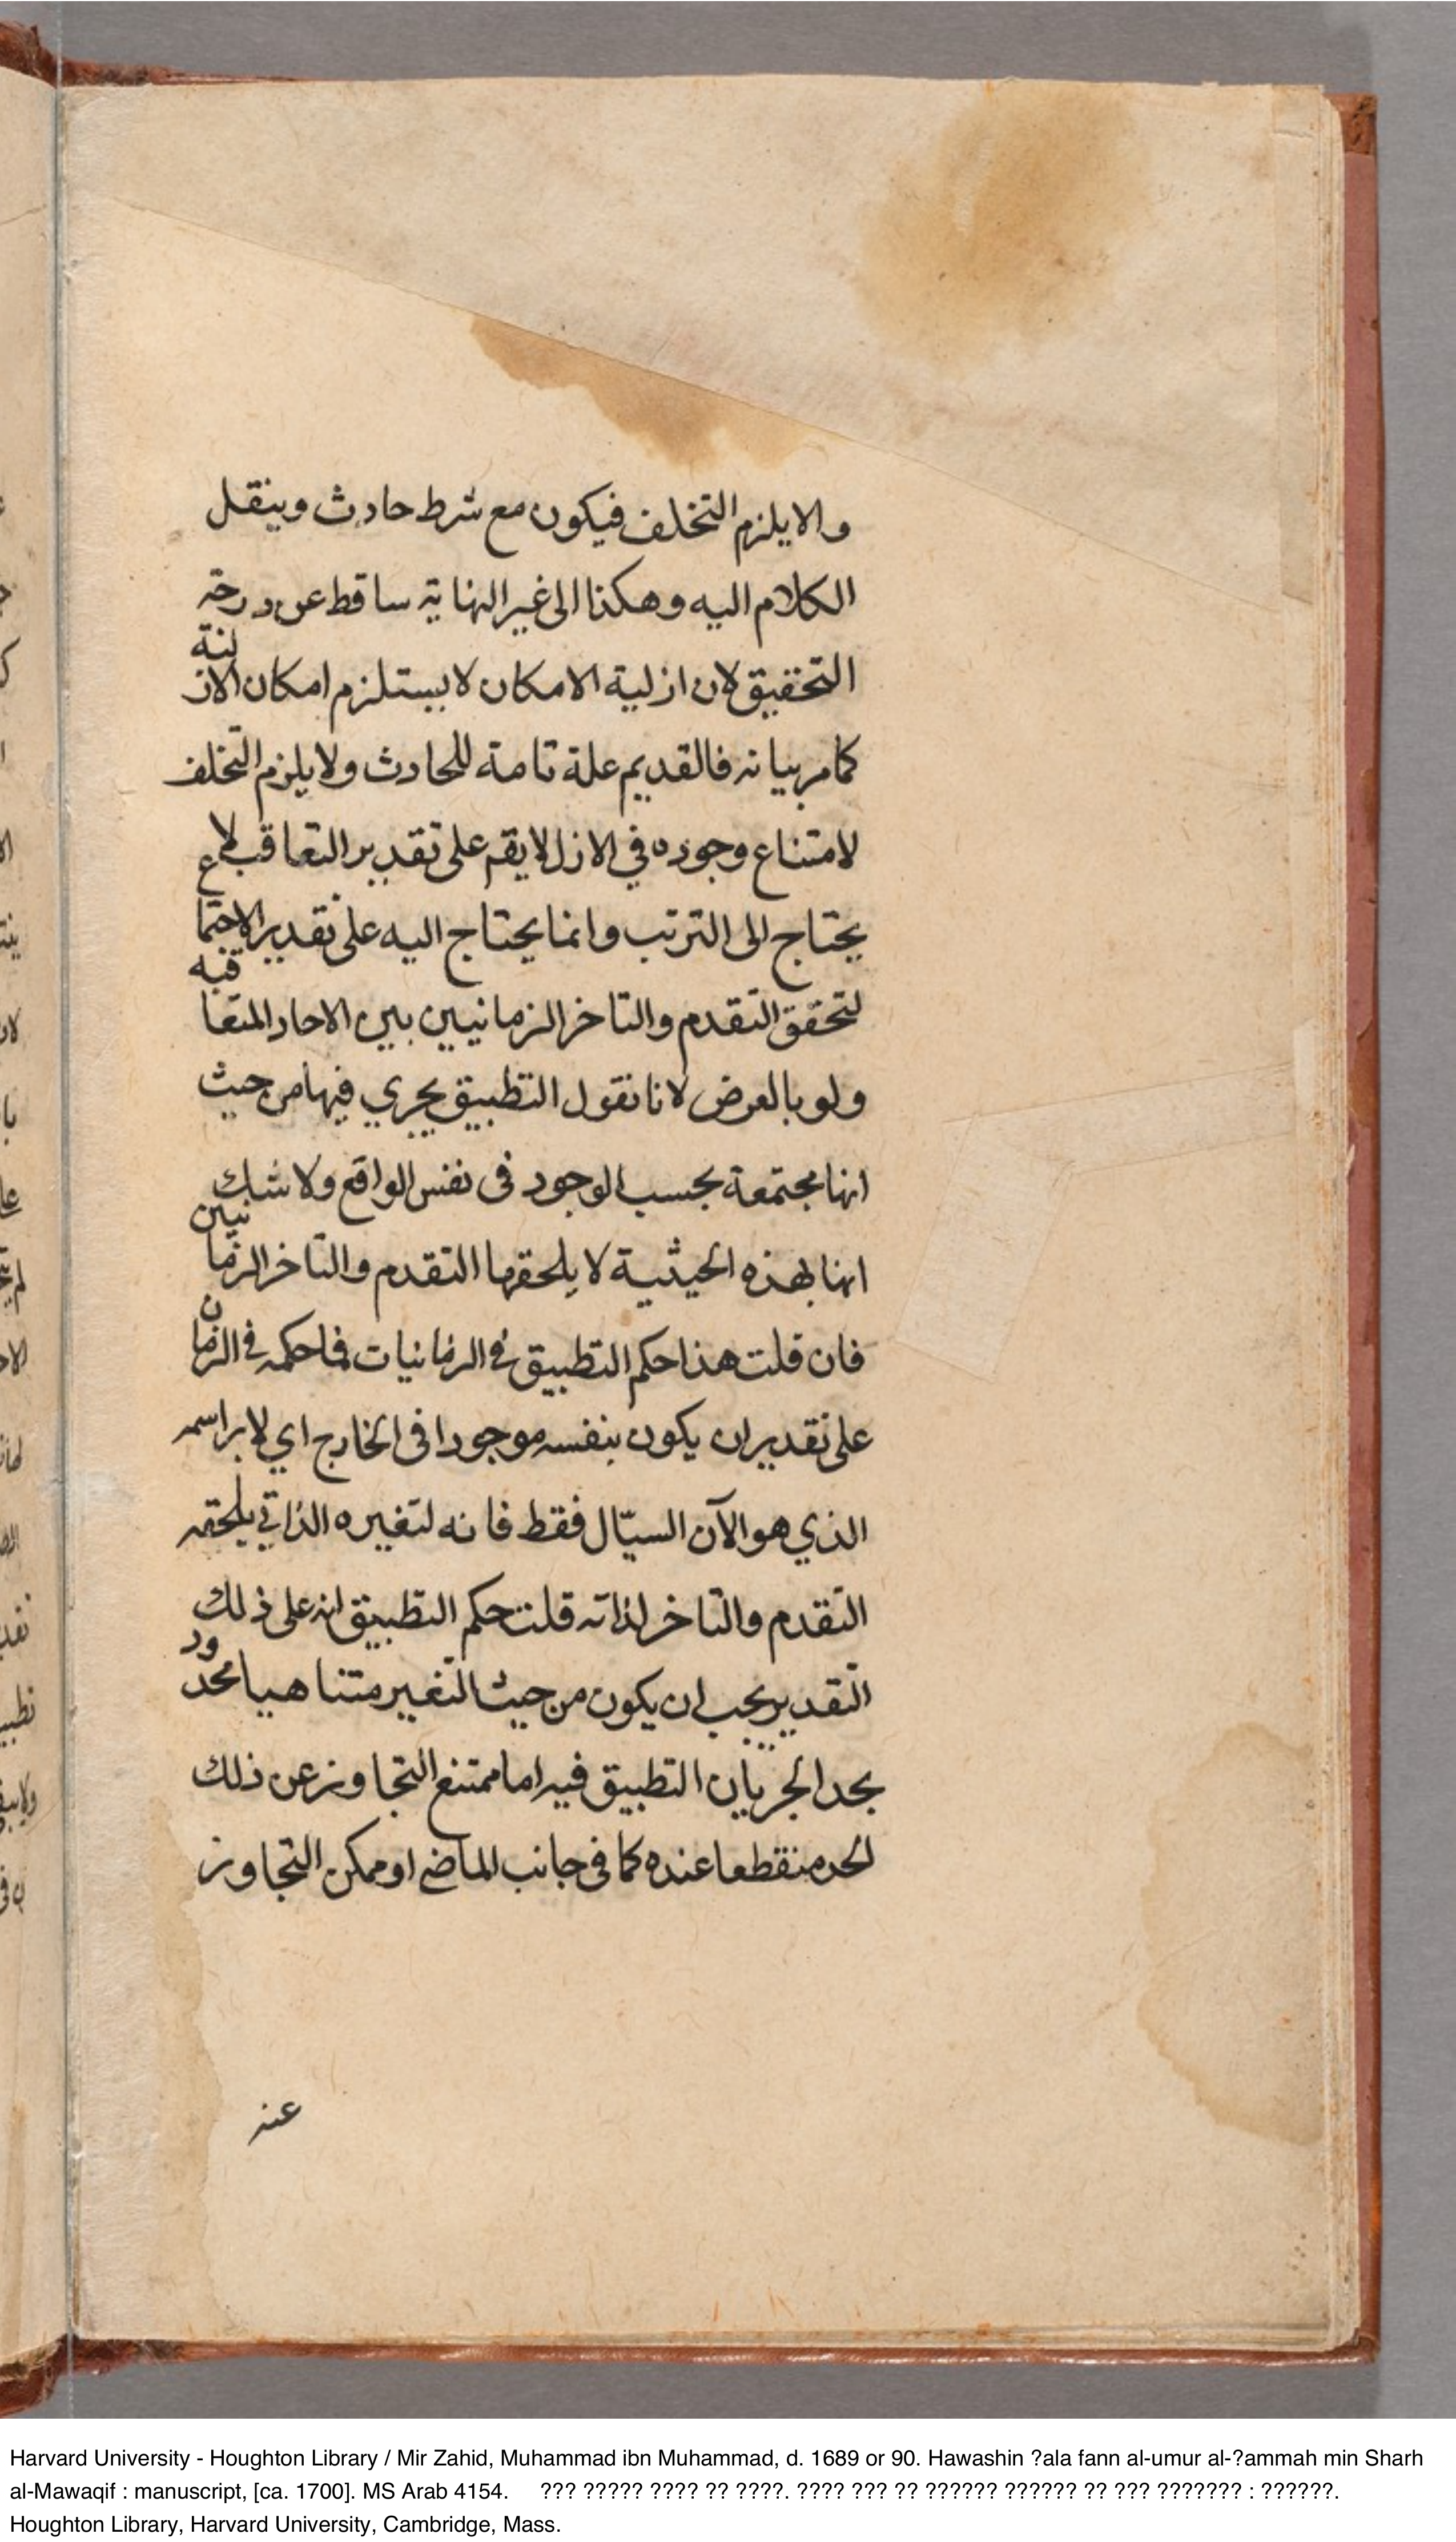 والا يلزم التخلف فيكون مع شرط حادث وينقل
الكلام اليه وهكذا الى غير النهاية ساقط عن درجة
التحقيق لان ازلية الامكان لا يستلزم امكان الازلية
كما مر بيانه فالقديم علة تامة للحادث ولا يلزم التخلف
لامتناع وجوده في الازل لا يقم على تقدير التعاقب لا
يحتاج الى الترتب وانما يحتاج اليه على تقدير الاجتماع
لتحقق التقدم والتاخر الزمانيين بين الاحاد المتعاقبه
ولو بالعرض لانا نقول التطبيق يجري فيها من حيث
انها مجتمعة بحسب الوجود فى نفس الواقع ولا شك
انها بهذه الحيثية لا يلحقها التقدم والتاخر الزمانيين
فان قلت هذا حكم التطبيق في الزمانيات فما حكمه في الزمان
على تقدير ان يكون بنفسه موجودا فى الخارج اي لا براسمه
الذي هو الآن السيّال فقط فانه لتغيره الذاتي يلحقه
التقدم والتاخر لذاته قلت حكم التطبيق انه على ذلك
التقدير يجب ان يكون من حيث التغير متناهيا محدود
بحد الجريان التطبيق فيه اما ممتنع التجاوز عن ذلك
الحد منقطعا عنده كما فى جانب الماضي او ممكن التجاوز
عنه
Harvard University - Houghton Library / Mir Zahid, Muhammad ibn Muhammad, d. 1689 or 90. Hawashin ?ala fann al-umur al-?ammah min Sharh
al-Mawaqif : manuscript, [ca. 1700]. MS Arab 4154. ??? ????? ???? ?? ????. ???? ??? ?? ?????? ?????? ?? ??? ??????? : ??????.
Houghton Library, Harvard University, Cambridge, Mass.